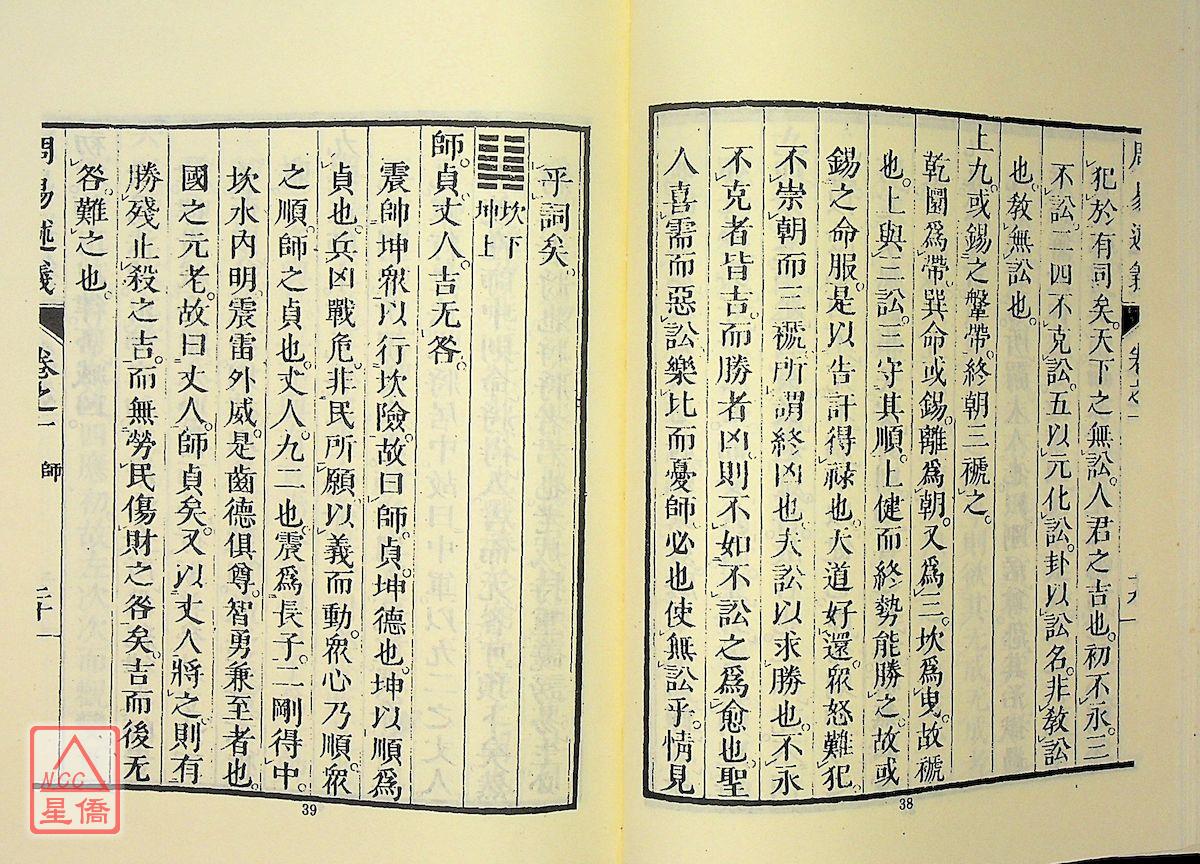 犯於有司矣。天下之無訟。人君之吉也。初不永。三
不訟。二四不克訟。五以元化訟。卦以訟名。非敎訟
也。敎無訟也。
上九。或錫之鞶帶。終朝三褫之。
乾圜爲帶。巽命或錫。離爲朝。又爲三。坎爲曳。故褫
也。上與三訟。三守其順。上健而終。勢能勝之。故或
錫之命服。是以告訐得祿也。天道好還。衆怒難犯。
不崇朝而三褫。所謂終凶也。夫訟以求勝也。不永
不克者皆吉。而勝者凶。則不如不訟之爲愈也。聖
人喜需而惡訟。樂比而憂師。必也使無訟乎。情見
38
乎詞矣。
坎下
坤上
師。貞。丈人。吉无咎。
震帥坤衆。以行坎險。故曰師。貞。坤德也。坤以順爲
貞也。兵凶戰危。非民所願。以義而動。衆心乃順。衆
之順。師之貞也。丈人。九二也。震爲長子。二剛得中。
坎水內明。震雷外威。是齒德俱尊。智勇兼至者也。
國之元老。故曰丈人。師貞矣。又以丈人將之。則有
勝殘止殺之吉。而無勞民傷財之咎矣。吉而後无
咎。難之也。
周易述義 卷之一 師 二十一
39
NCC
星僑